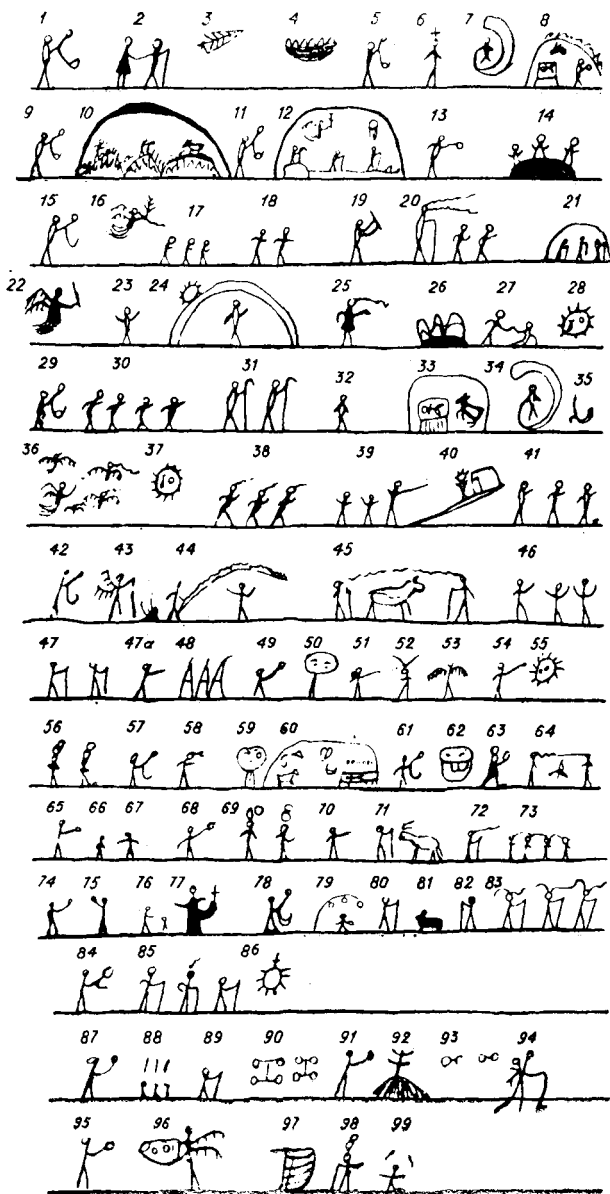 1 2 3 4 5 6 7 8
9 10 11 12 13 14
15 16 17 18 19 20 21
22 23 24 25 26 27 28
29 30 31 32 33 34 35
36 37 38 39 40 41
42 43 44 45 46
47 47a 48 49 50 51 52 53 54 55
56 57 58 59 60 61 62 63 64
65 66 67 68 69 70 71 72 73
74 75 76 77 78 79 80 81 82 83
84 85 86
87 88 89 90 91 92 93 94
95 96 97 98 99